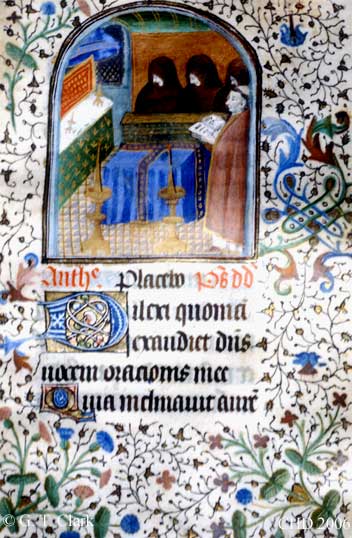 Anthē Placebo Ps̄ dd
Dilexi quoniā
exaudiet dn̄s
uocem oracionis mee
Quia inclinauit aurē
© G. T. Clark
CHD 2006